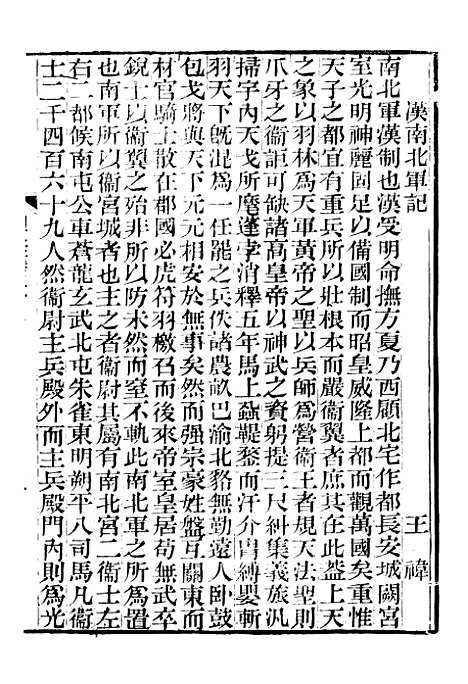 漢南北軍記
王禕
南北軍漢制也漢受明命撫方夏乃西顧北宅作都長安城闕宮
室光明神麗固足以備國制而昭皇威隆上都而觀萬國矣重惟
天子之都宜有重兵所以壯根本而嚴衞翼者庶其在此蓋上天
之象以羽林爲天軍黃帝之聖以兵師爲營衞王者規天法聖則
爪牙之衞詎可缺諸高皇帝以神武之資躬提三尺糾集義旅汎
掃宇內天戈所麾蓬孛消釋五年馬上蝨鞮鍪而汗介冑縛嬰斬
羽天下旣混爲一任罷之兵佚諸農畝巴渝北貉無勤遠人卧鼓
包戈將與天下元元相安於無事矣然而强宗豪姓盤互關東而
材官騎士散在郡國必虎符羽檄召而後來帝室皇居苟無武卒
銳士以衞翼之殆非所以防未然而窒不軌此南北軍之所爲置
也南軍所以衞宮城者也主之者衞尉其屬有南北宮二衞士左
右二都候南屯公車蒼龍玄武北屯朱雀東明朔平八司馬凡衞
士二千四百六十九人然衞尉主兵殿外而主兵殿門內則爲光